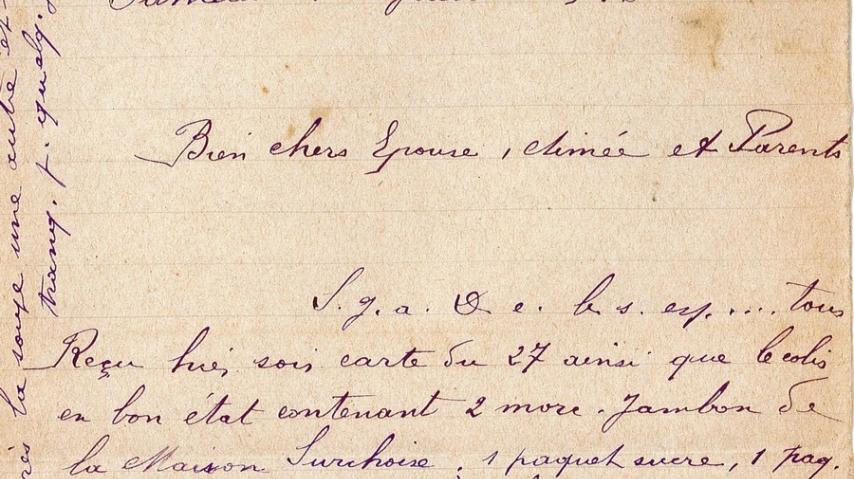 Bien chers Epouse, Aimée et Parents
S. g. a. & e. b. s. esp. .... tous
Reçu hier soir carte du 27 ainsi que le colis
en bon état contenant 2 morc. Jambon de
la Maison Surchoise, 1 paquet sucre, 1 paq.
la soupe une autre et
tranq. p. quelq.